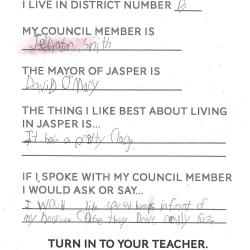 I LIVE IN DISTRICT NUMBER B
MY COUNCIL MEMBER IS
Smith
THE MAYOR OF JASPER IS
David O'Mary
THE THING I LIKE BEST ABOUT LIVING
IN JASPER IS...
It has a pretty flag.
IF I SPOKE WITH MY COUNCIL MEMBER
I WOULD ASK OR SAY...
I would like speed bumps in front of
my house. they drive really fast.
TURN IN TO YOUR TEACHER.